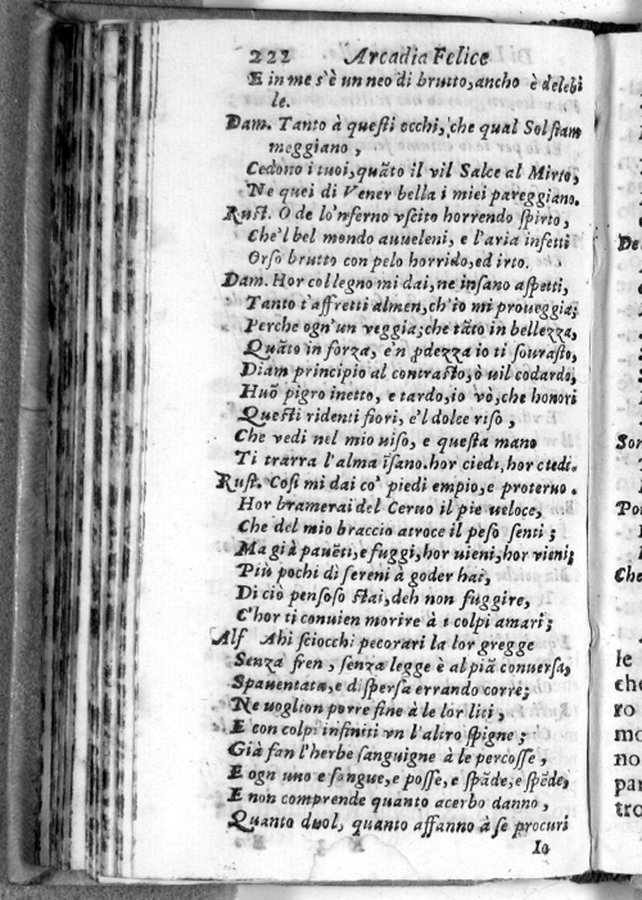 222 Arcadia Felice
E in me s'è un neo di brutto, ancho è delebi
le.
Dam. Tanto à questi occhi, che qual Sol fiam
meggiano,
Cedono i tuoi, quãto il vil Salce al Mirto,
Ne quei di Vener bella i miei pareggiano.
Rust. O de lo'nferno vscito horrendo spirto,
Che'l bel mondo auueleni, e l'aria infetti
Orso brutto con pelo horrido, ed irto.
Dam. Hor col legno mi dai, ne insano aspetti,
Tanto t'affretti almen, ch'io mi proueggia;
Perche ogn'un veggia; che tãto in bellezza,
Quãto in forza, e'n pdezza io ti sourasto,
Diam principio al contrasto, ò uil codardo,
Huõ pigro inetto, e tardo, io vò, che honori
Questi ridenti fiori, e'l dolce riso,
Che vedi nel mio uiso, e questa mano
Ti trarra l'alma ĩsano. hor ciedi, hor ciedi.
Rust. Cosi mi dai co' piedi empio, e proteruo.
Hor bramerai del Ceruo il pie ueloce,
Che del mio braccio atroce il peso senti;
Ma già pauẽti, e fuggi, hor uieni, hor vieni;
Più pochi dì sereni à goder hai,
Di ciò pensoso stai, deh non fuggire,
C'hor ti conuien morire à i colpi amari;
Alf Ahi sciocchi pecorari la lor gregge
Senza fren, senza legge è al piã conuersa,
Spauentata, e dispersa errando corre;
Ne uoglion porre fine à le lor liti,
E con colpi infiniti vn l'altro spigne;
Già fan l'herbe sanguigne à le percosse,
E ogn uno e sangue, e posse, e spãde, e spẽde,
E non comprende quanto acerbo danno,
Quanto duol, quanto affanno à se procuri
Io
De
Son
Po
Che
le
che
ro
mo
no
par
tro